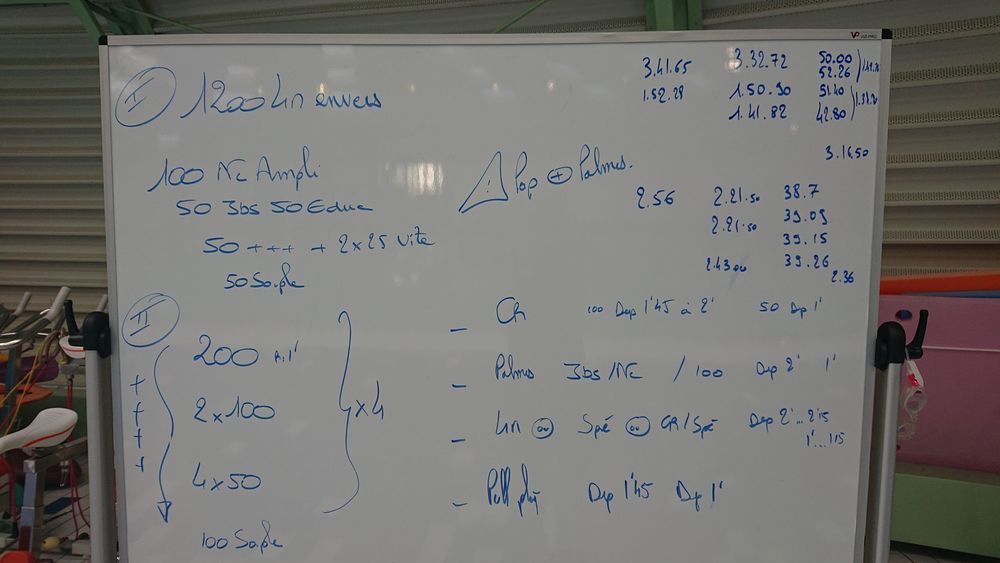 I 1200 4n envers
100 Nc Ampli
50 3bs 50 Educ
50 +++ + 2x25 Vite
50 Souple
3.41.65 3.32.72 50.00
52.26
1.52.29 1.50.90 51.40
1.41.82 42.80
3.16.50
! Pap + Palmes.
2.56 2.21.50 38.7
2.21.50 39.09
39.15
2.43.00 39.26
2.36
II
200 R:1'
2x100
4x50
x4
100 Souple
- Cr 100 Dep 1'45 à 2' 50 Dep 1'
- Palmes 3bs/NC /100 Dep 2' 1'
- 4n ou Spé ou CR/Spé Dep 2'...2'15
1'...1'15
- Pull Dep 1'45 Dep 1'